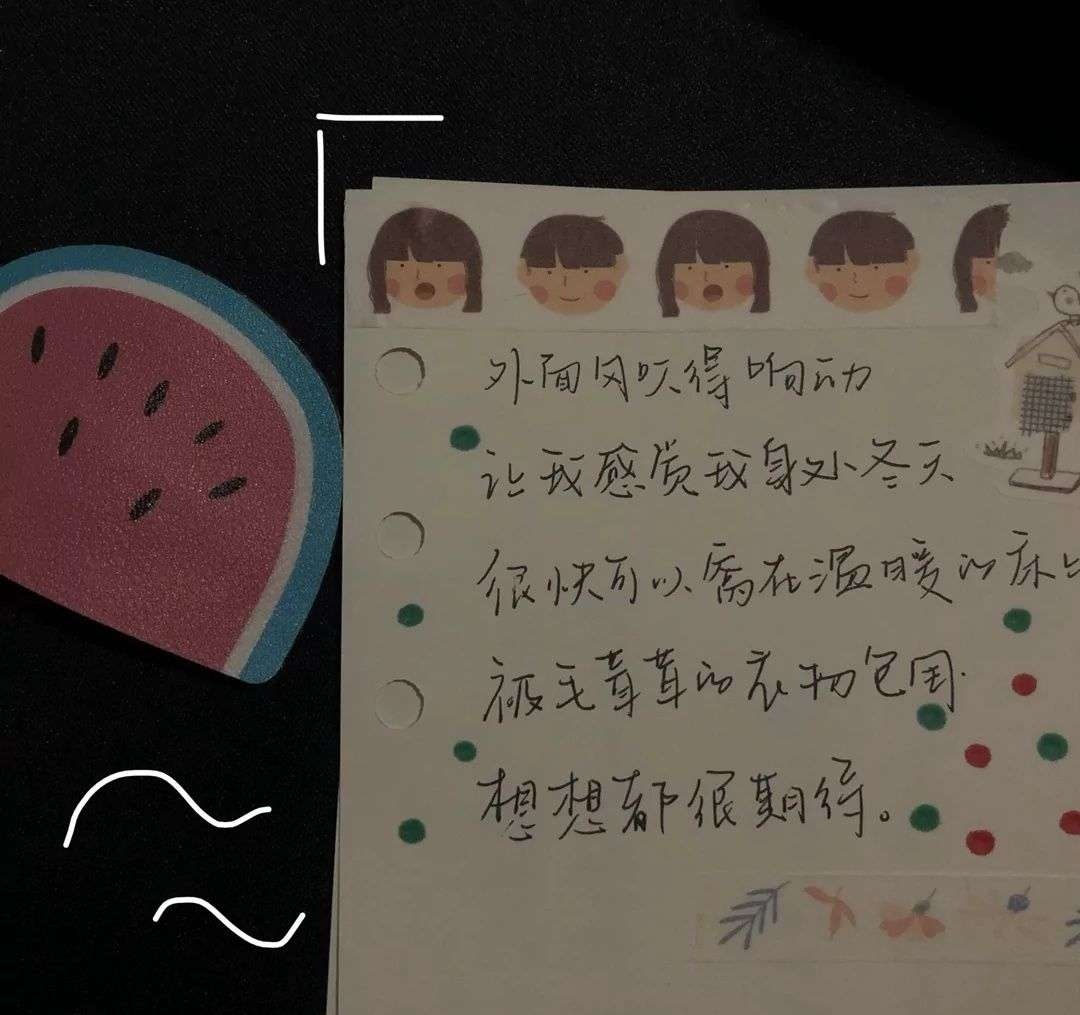 外面风吹得响动
让我感觉我身处冬天
很快可以窝在温暖的床上
被毛茸茸的衣物包围.
想想都很期待。